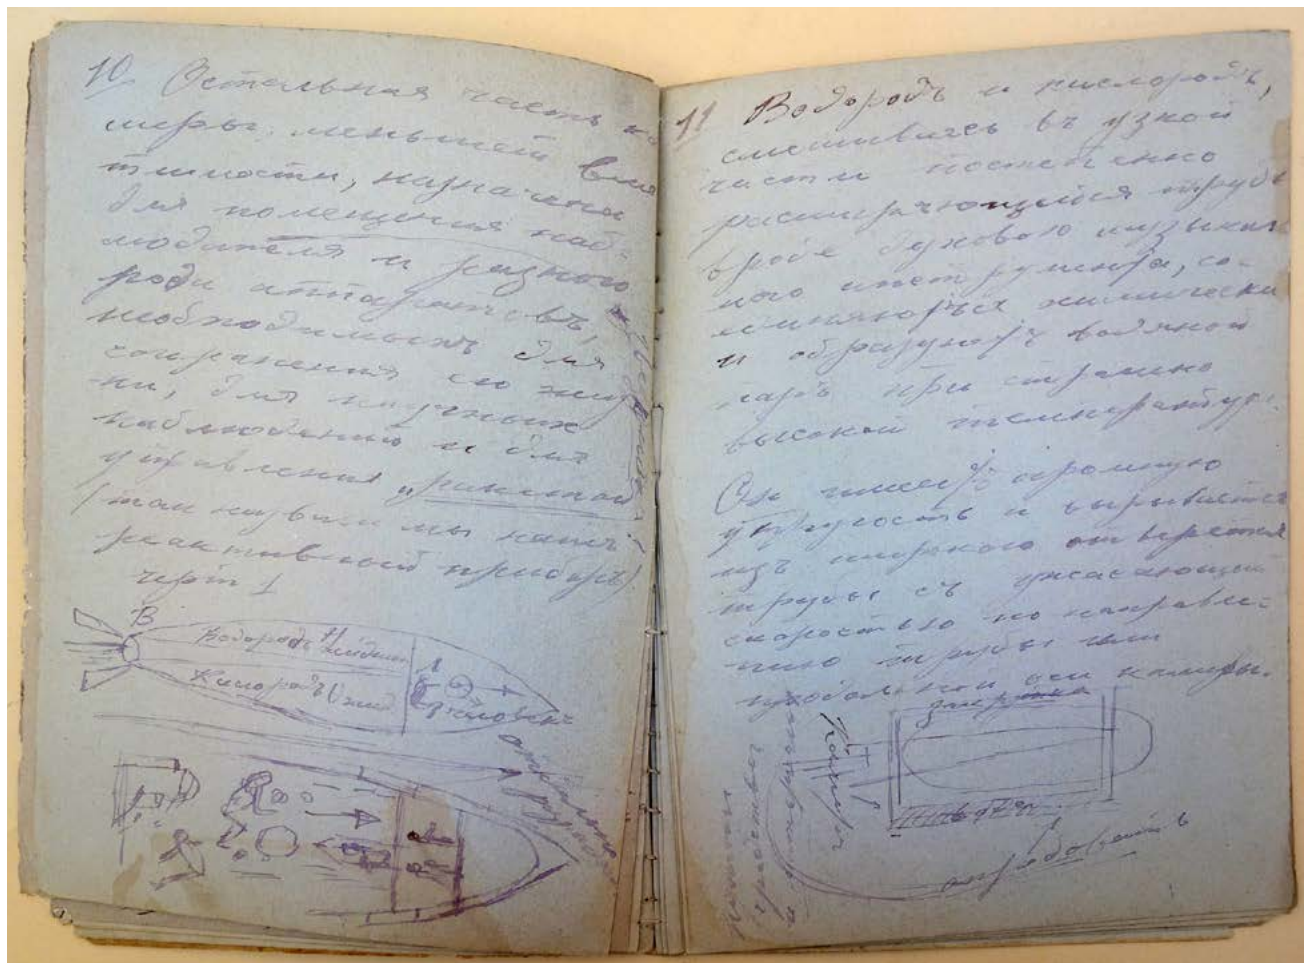 10. Остальная часть ка
меры меньшей вмѣ
стимости, назначена
для помещения наб-
людателя и разного
рода аппаратовъ,
необходимыхъ для
сохранения его жиз
ни, для научных
наблюдений и для
управления „ракетой"
(так назвали мы нашъ
реактивный приборъ)
черт 1
В
Водородъ H жидкий
Кислородъ O жид
А
человекъ
11 Водородъ и кислородъ,
смешиваясь въ узкой
части постепенно
расширяющейся трубы
вроде духового музыкаль
ного инструмента, со-
единяются химически
и образуютъ водяной
паръ при страшно
высокой температуре.
Он имеетъ огромную
упругость и вырывается
изъ широкого отверстия
трубы съ ужасающей
скоростью по направле-
нию трубы или
продольной оси камеры.